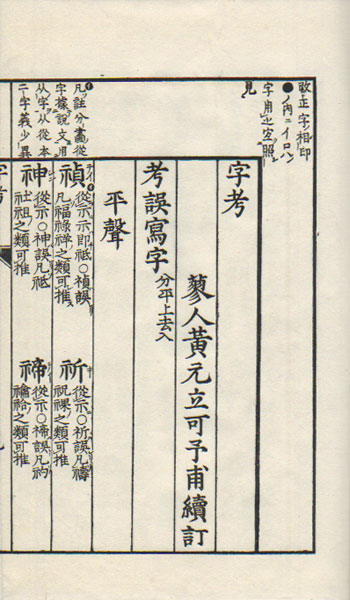 改正字相印
●ノ内ニイロハノ
字用之宜照
見
字考
蓼人黃元立可予甫續訂
考誤寫字 分平上去入
平聲
凡註分畫從
字據說文用
从字从從本
二字義少異
禎 從示示即祗○禎誤
凡福祿祥之類可推
祈 從示○祈誤凡禱
祝祼之類可推
神 從示○神誤凡祗
社祖之類可推
禘 從示○禘誤凡礿
禬祫之類可推
字考